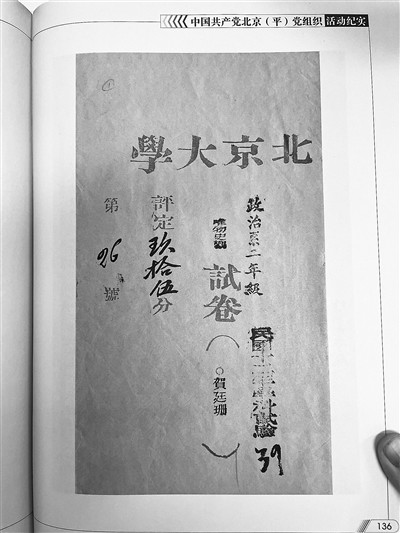 中国共产党北京（平）党组织 活动纪实
①
北京大學
政治系二年級
唯物史觀
試卷（○賀廷珊）
民國十二年學科試驗
39
評定玖拾伍分
第26號
136